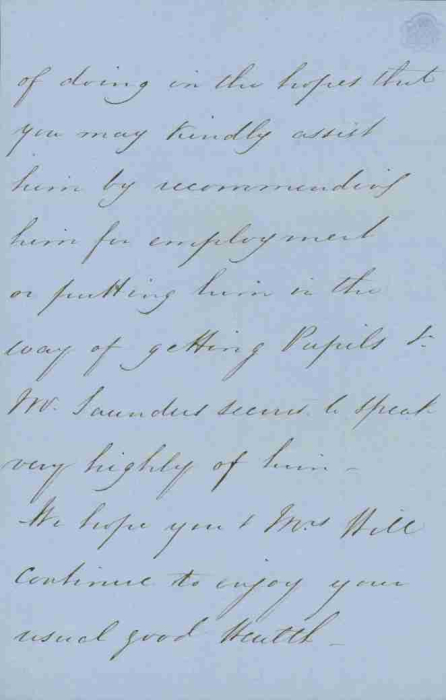 of doing in the hopes that
you may kindly assist
him by recommending
him for employment
or putting him in the
way of getting Pupils &
Mr. Saunders seems to speak
very highly of him -
We hope you & Mrs Hill
continue to enjoy your
usual good Health -